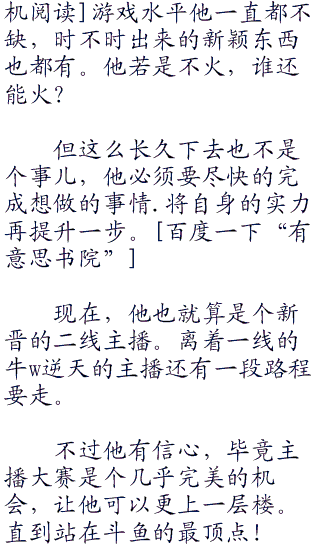 机阅读]游戏水平他一直都不
缺，时不时出来的新颖东西
也都有。他若是不火，谁还
能火？
但这么长久下去也不是
个事儿，他必须要尽快的完
成想做的事情.将自身的实力
再提升一步。[百度一下“有
意思书院”]
现在，他也就算是个新
晋的二线主播。离着一线的
牛w逆天的主播还有一段路程
要走。
不过他有信心，毕竟主
播大赛是个几乎完美的机
会，让他可以更上一层楼。
直到站在斗鱼的最顶点！